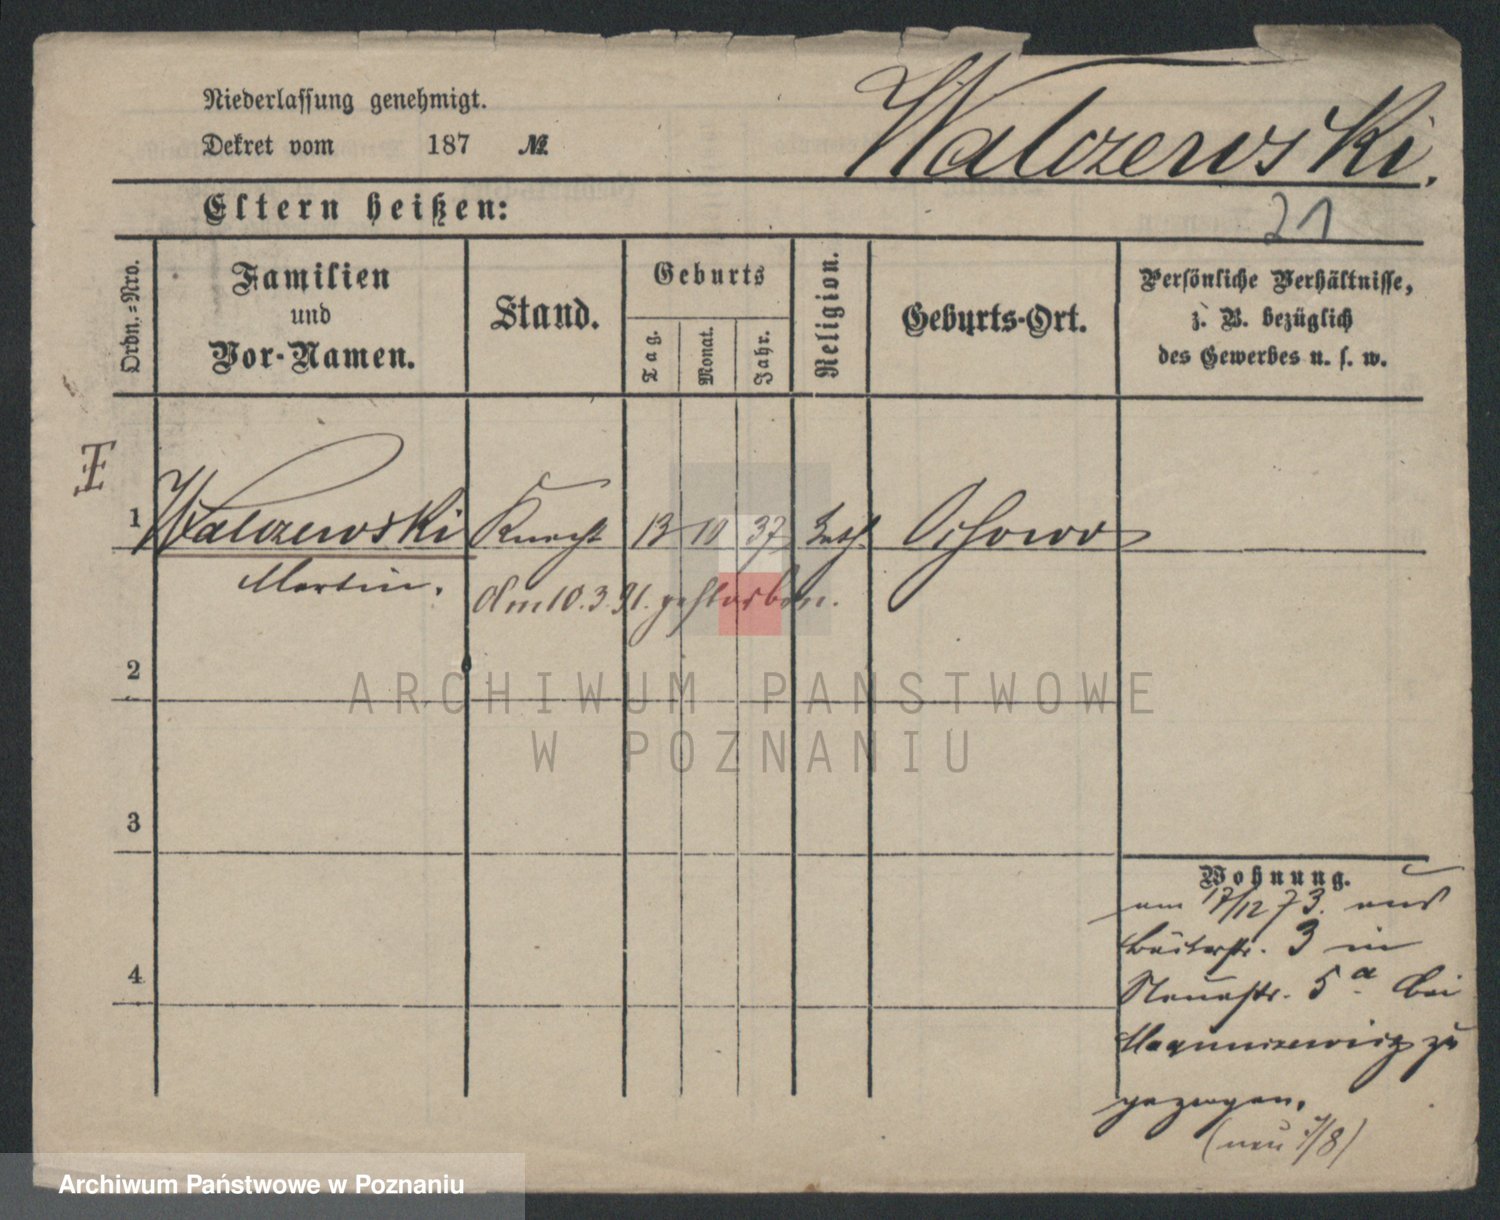 Niederlassung genehmigt.
Dekret vom 187 №
Walczewski.
Eltern heißen:
21
Ordn.=Nro.
Familien
und
Vor-Namen.
Stand.
Geburts
Tag.
Monat.
Jahr.
Religion.
Geburts-Ort.
Persönliche Verhältnisse,
z. B. bezüglich
des Gewerbes u. s. w.
1 Walczewski Knecht 13 10 37 kath.
Martin. Am 10.3.91. gestorben.
2
ARCHIWUM PAŃSTWOWE
W POZNANIU
3
4
Wohnung.
am 17/12 73. aus
3 in
Neuestr. 5a bei
zu
gezogen.
(neu 7/8)
Archiwum Państwowe w Poznaniu